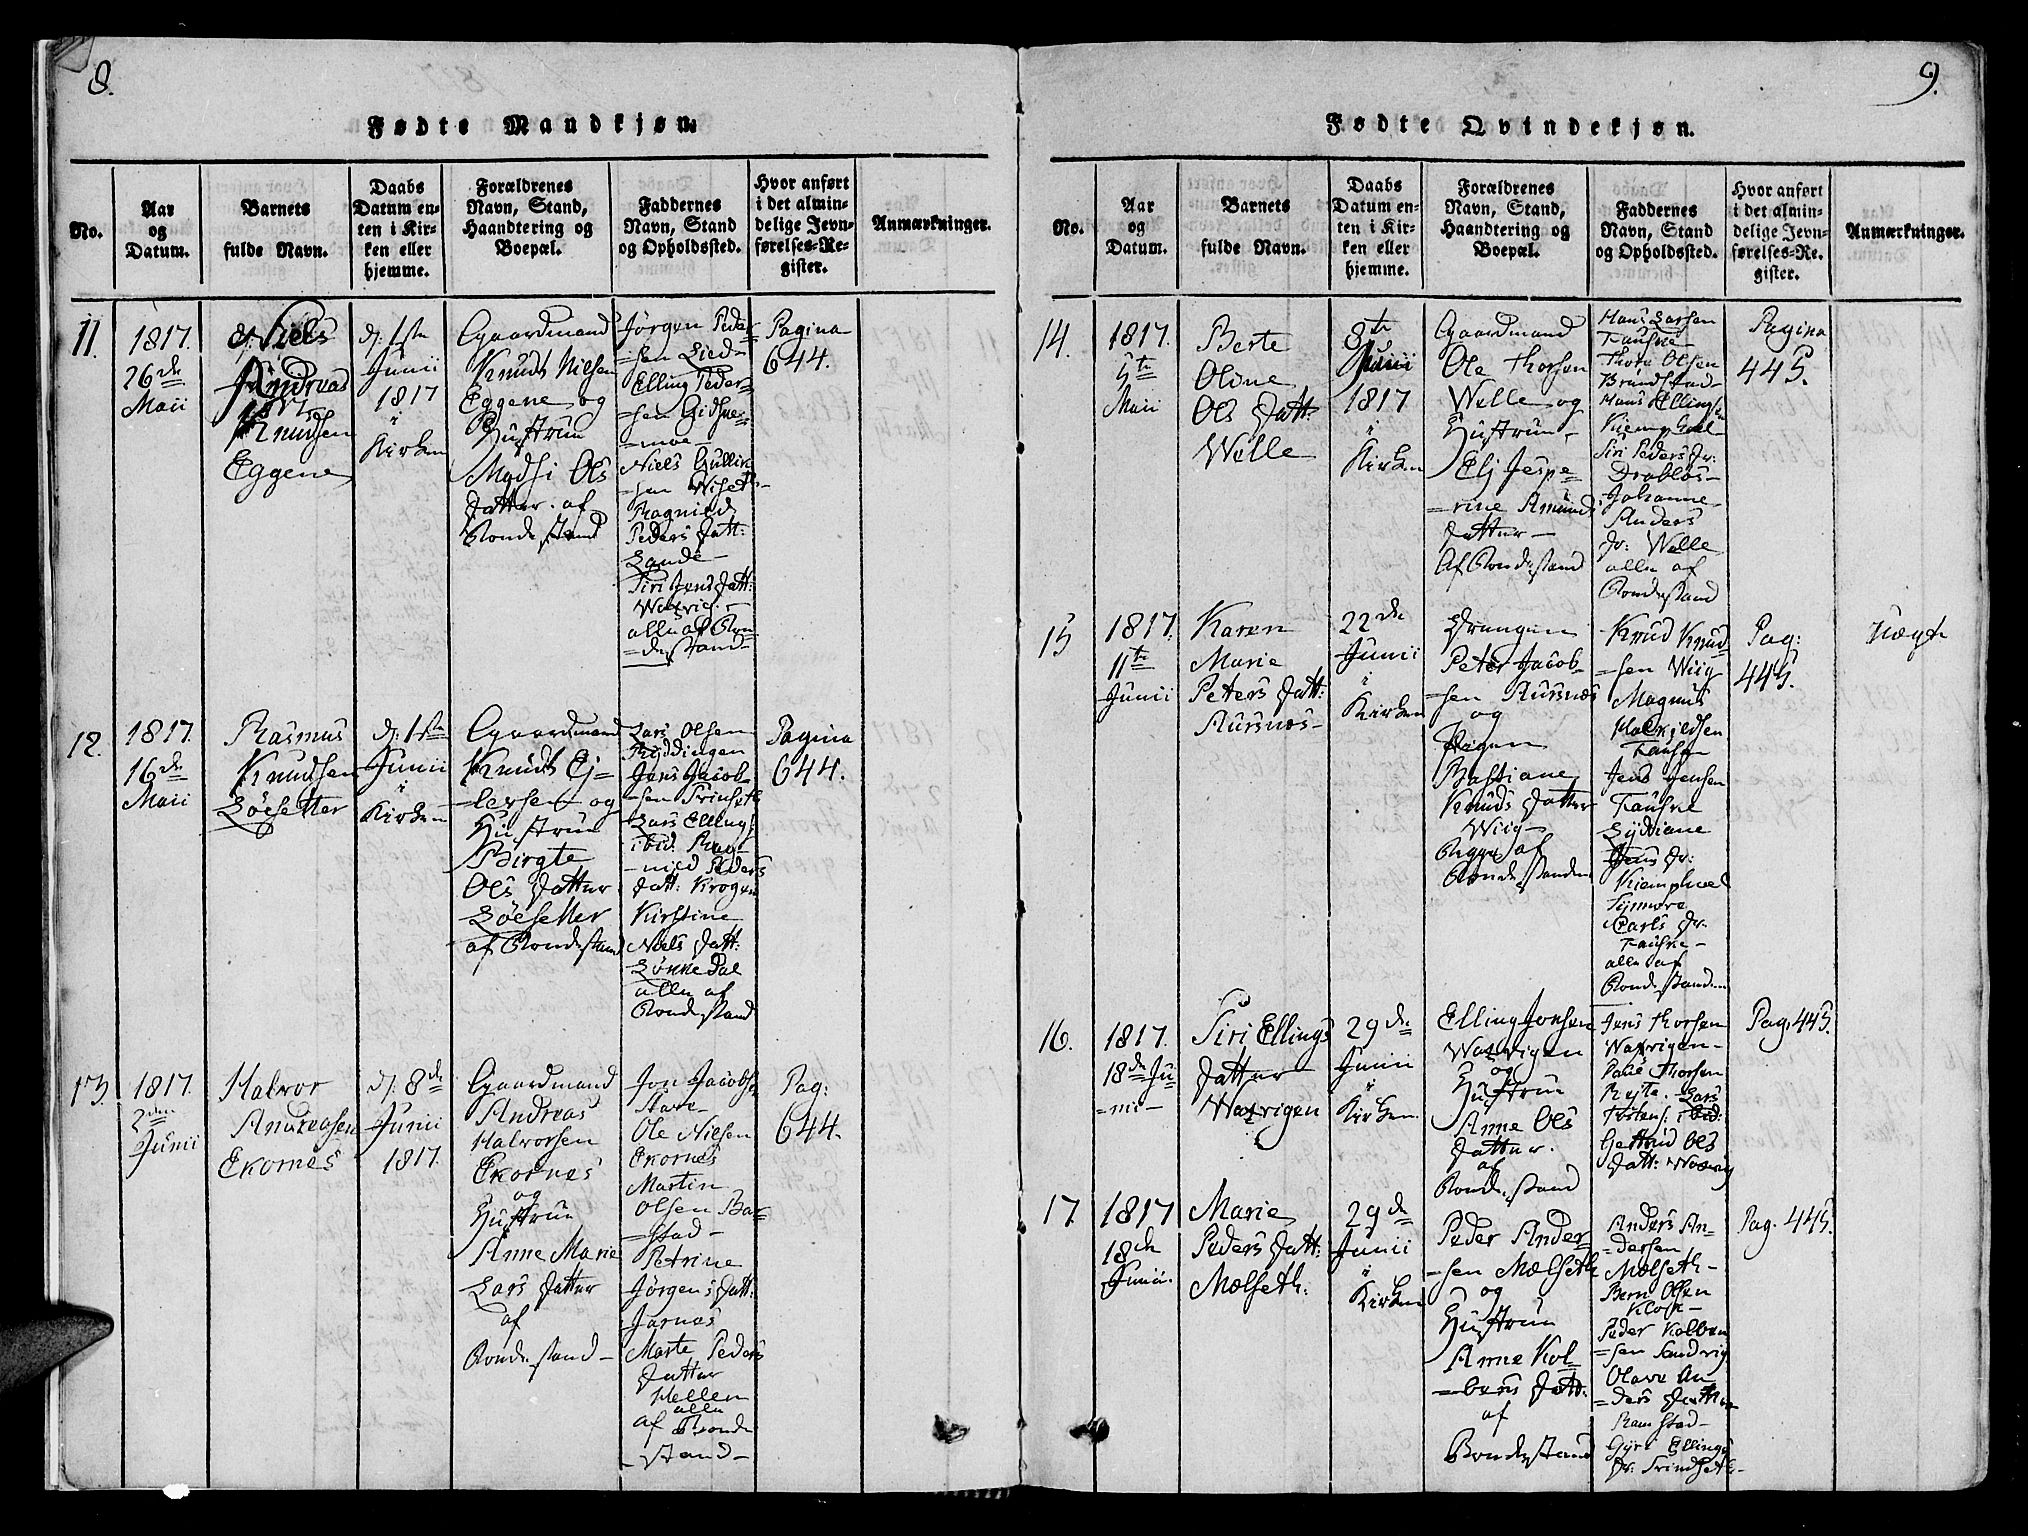 8.
Fødte Mandkjøn.
No.
Aar
og
Datum.
Barnets
fulde Navn.
Daabs
Datum en-
ten i Kir-
ken eller
hjemme.
Forældrenes
Navn, Stand,
Haandtering og
Boepæl.
Faddernes
Navn, Stand
og Opholdssted.
Hvor anført
i det almin-
delige Jevn-
førelses-Re-
gister.
Anmærkninger.
11.
1817.
26de
Maii
Niels
Andreas
Knudsen
Eggene
d: 1ste
Junii
1817
i
Kirken
Gaardmand
Knud Nielsen
Eggene og
Hustrue
Madsi Ols
Datter. af
Bondestand
Jörgen Peder
=sen Lied-
Elling Peder-
=sen Gidske-
=moe-
Niels Gullik
=sen Wiseth-
Ragnild
Peders Datt:
Lande-
Siri Jens Datt:
Watrig.-
alle af Bon-
=destand-
Pagina
644.
12.
1817.
16de
Maii
Rasmus
Knudsen
Löesetter
d: 1ste
Junii
i
Kirken
Gaardmand
Knud Ej-
=lersen og
Hustrue
Birgte
Ols Datter
Löesetter
af Bondestand
Lars Olsen
Ryddingen
Jens Jacob-
=sen Trinseth
Lars Ellings
ibid. Rag-
=nild Peders
Datt: Krogen
Kirstine
Niels Datt:
Lönke Dal
alle af
Bondestand
Pagina
644.
13.
1817.
2den
Junii
Halvor
Andreasen
Ekornes
d: 8de
Junii
1817.
Gaardmand
Andreas
Halvorsen
Ekornes
og
Hustrue
Anne Marie
Lars Datter
af
Bondestand-
Jon Jacobse
Stave-
Ole Nielsen
Ekornes
Martin
Olsen Bar-
=stad-
Petrine
Jörgens Datt:
Jarnæs
Marte Peders
Datter
Hellen
alle
af Bonde
-stand-
Pag:
644.
9.
Fødte Qvindekjøn.
No.
Aar
og
Datum.
Barnets
fulde Navn.
Daabs
Datum en-
ten i Kir-
ken eller
hjemme.
Forældrenes
Navn, Stand,
Haandtering og
Boepæl.
Faddernes
Navn, Stand
og Opholdssted.
Hvor anført
i det almin-
delige Jevn-
førelses-Re-
gister.
Anmærkninger.
14.
1817.
5te
Maii
Berte
Oline
Ols Datt:
Welle
8te
Junii
1817
i
Kirken
Gaardmand
Ole Thorsen
Welle og
Hustrue-
Elj Jespe=
=rine Amund
Datter-
Af Bondestand
Hans Larsen
Fauske
Thore Olsen
Brandstad-
Hans Ellingsen
Kiemphoel
Siri Peders Dr:
Drabløs-
Johanne
Anders
Dr: Welle
alle af
Bondestand
Pagina
445.
15
1817.
11te
Junii
Karen
Marie
Peters Datt:
Aursnes-
22de
Junii
i
Kirken
Drengen
Peter Jacob-
=sen Aursnæs
og
Pigen
Bastiane
Knuds Datter
Wiig-
Begge af
Bondestanden
Knud Knud-
=sen Wiig
Magnus
Halkjeldsen
Fausken
Jens Jensen
Fauske
Lydiane
Jens Dr:
Kiemphoel
Synnøve
Carls Dr.
Fauske-
alle af
Bondestanden
Pag:
445.
Uægte
16.
1817.
18de Ju
=nii-
Siri Ellings
Datter
Watrigen
29de
Junii
i
Kirken.
Elling Jonsen
Watrigen
og
Hustrue
Anne Ols
Datter.
af
Bondestand
Jens Thorsen
Watrigen-
Thorsen
Lars
ibid:
Gertrud Ols
Datt: Watrig
Pag. 445.
17.
1817
18de
Junii.
Marie
Peders Datt:
Mælseth:
29de
Junii
i
Kirken
Peder Ander=
=sen Mælseth
og
Hustrue
Anne Kol-
=bens Datt:
af
Bondestand
Anders An-
=dersen
Mælseth-
Bern Olsen
Klok-
Peder Kolben
=sen Sandvig
Olave An
=ders Datter
Ramstad-
Gyri Ellings
Dr: Trindseth-
Pag. 445.